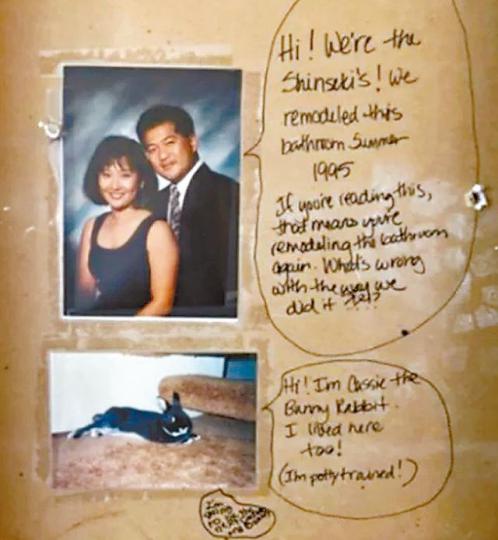 Hi! We're the
Shinseki's! We
remodeled this
bathroom Summer
1995
If you're reading this,
that means you're
remodeling the bathroom
again. What's wrong
with the way we
did it ?!?!?
Hi! I'm Cassie the
Bunny Rabbit.
I lived here
too!
(I'm potty trained!)